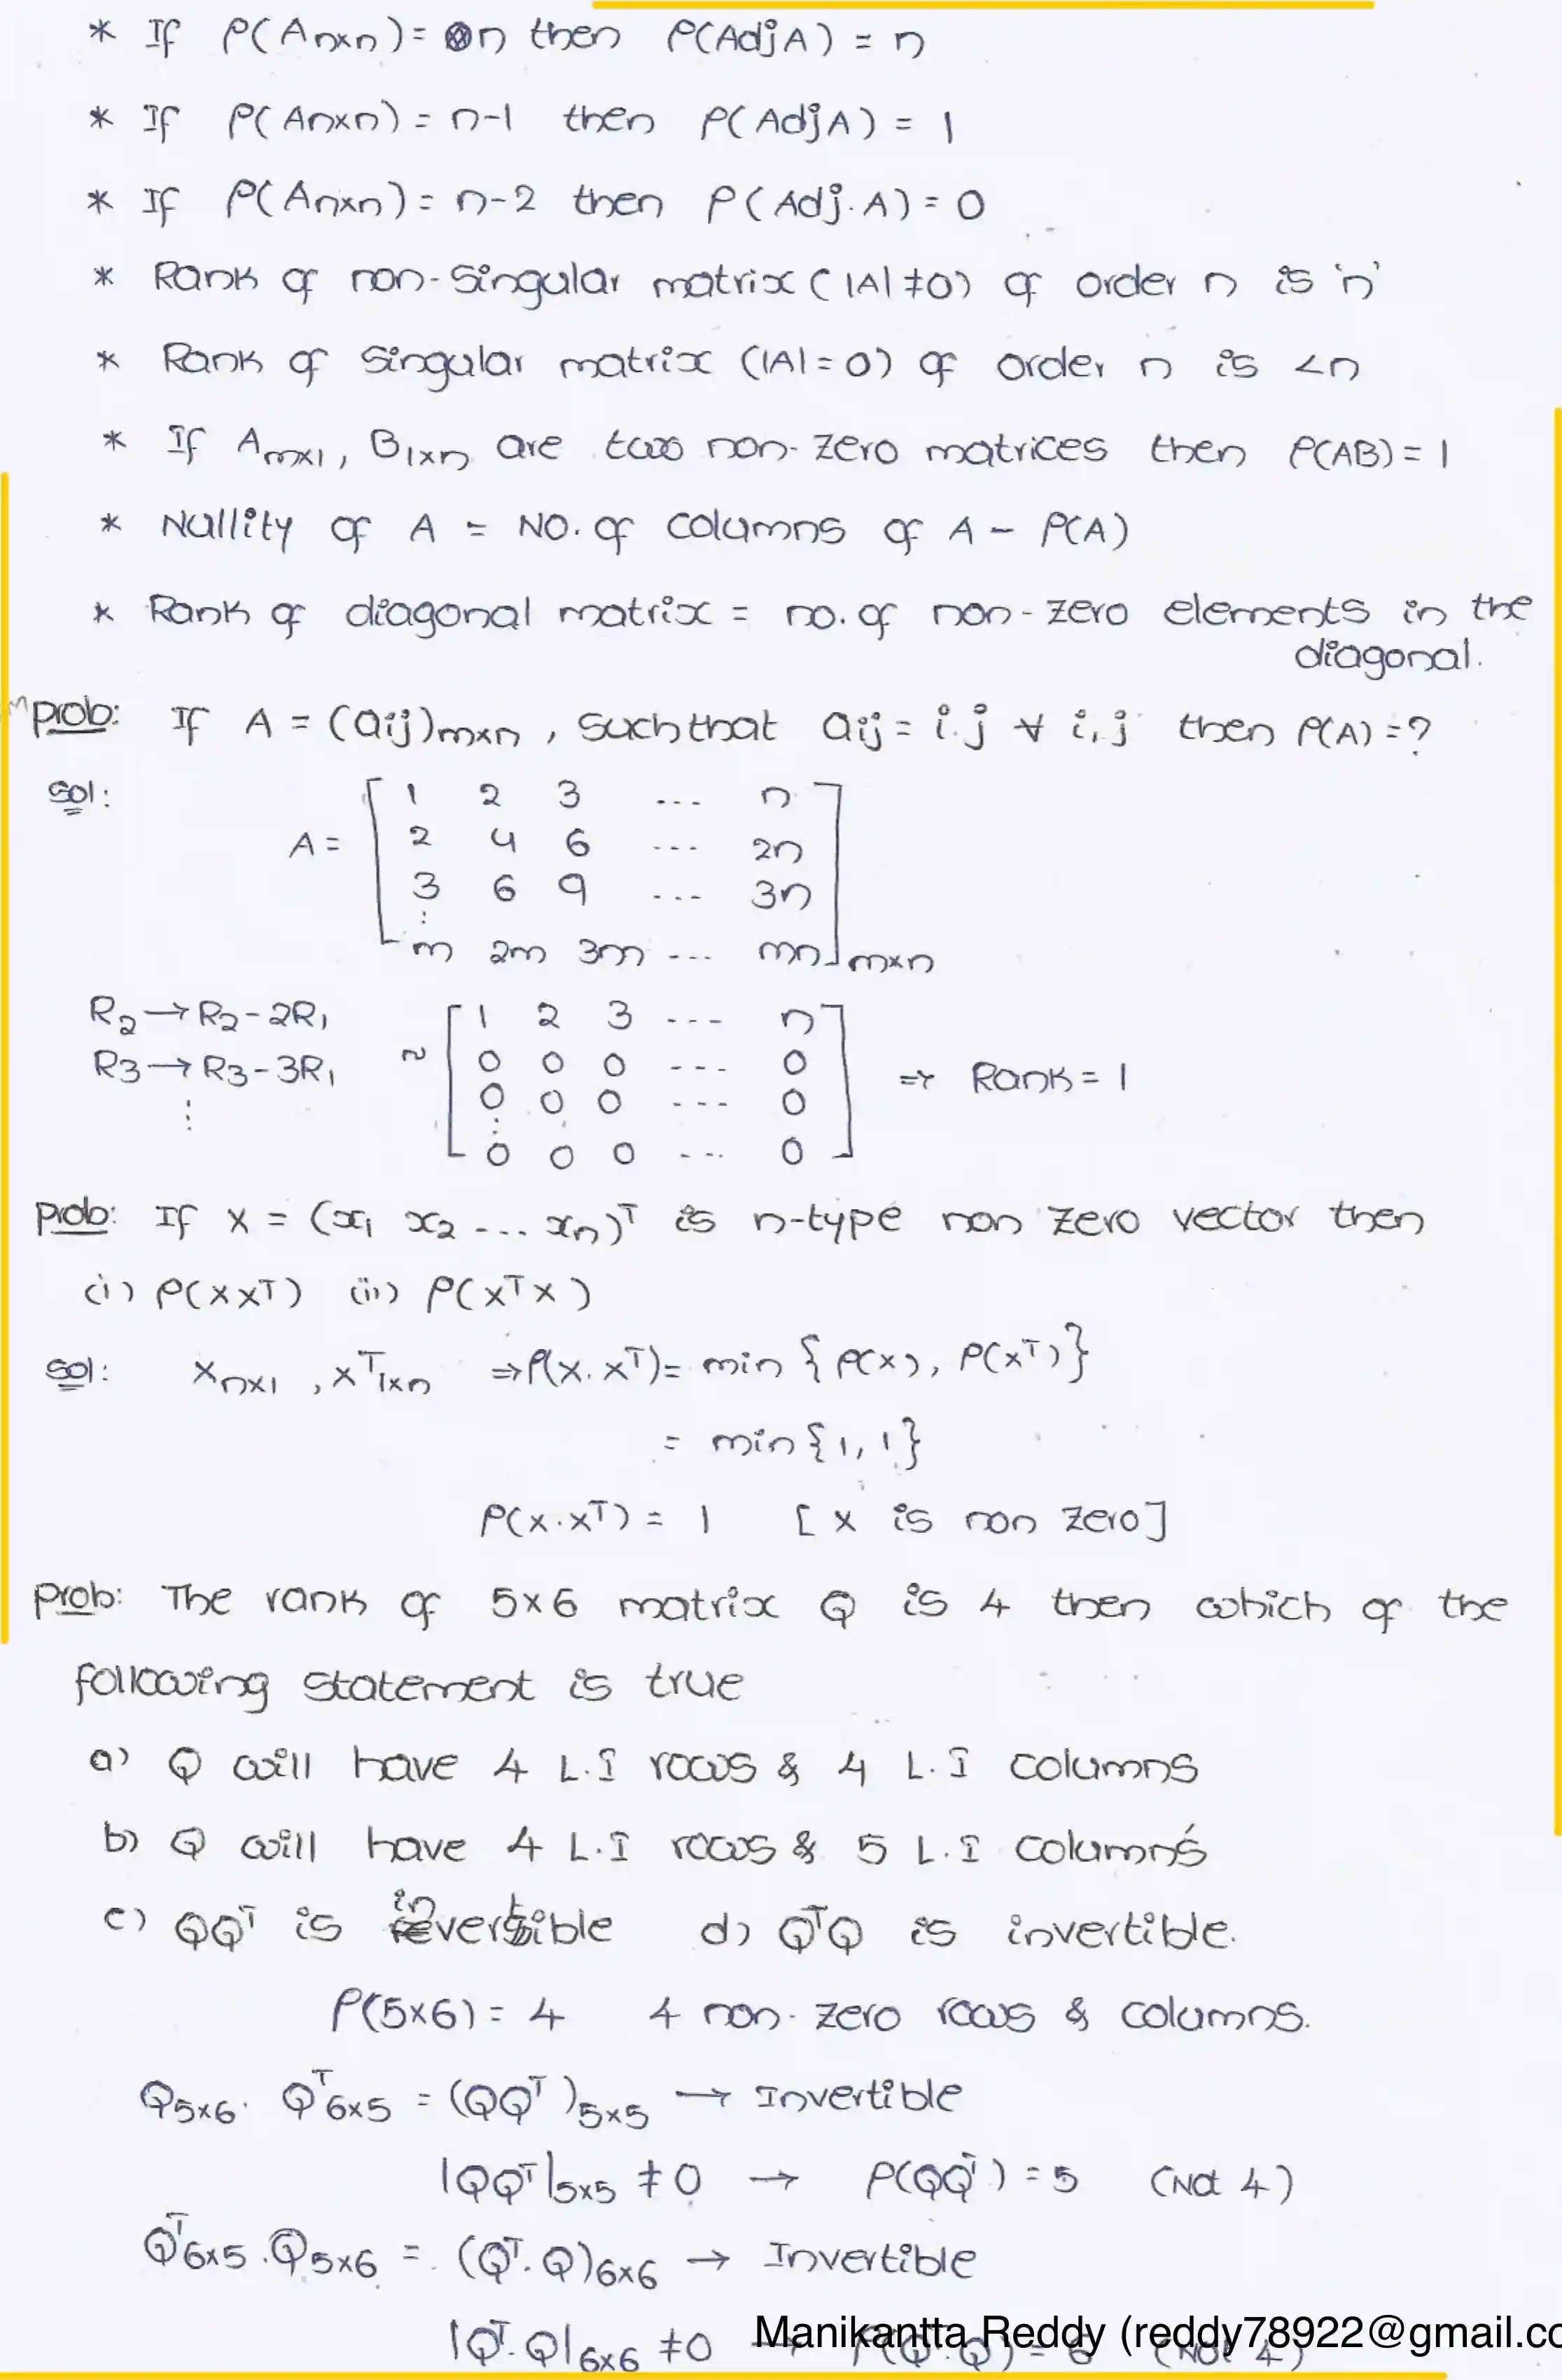 * If ρ(Anxn) = n then ρ(AdjA) = n
* If ρ(Anxn) = n-1 then ρ(AdjA) = 1
* If ρ(Anxn) = n-2 then ρ(Adj.A) = 0
* Rank of non-singular matrix (|A|≠0) of order n is 'n'
* Rank of singular matrix (|A|=0) of order n is <n
* If Amx1, B1xn are two non-zero matrices then ρ(AB) = 1
* Nullity of A = NO. of columns of A - ρ(A)
* Rank of diagonal matrix = no. of non-zero elements in the
diagonal.
prob: If A = (aij)mxn, such that aij = i.j ∀ i,j then ρ(A) = ?
Sol:
1 2 3 ... n
A = 2 4 6 ... 2n
3 6 9 ... 3n
⋮
m 2m 3m ... mn mxn
R2→R2-2R1 1 2 3 --- n
R3→R3-3R1 ~ 0 0 0 --- 0 ⇒ Rank = 1
⋮ 0 0 0 --- 0
⋮
0 0 0 --- 0
prob: If X = (x1 x2 ... xn)ᵀ is n-type non zero vector then
(i) ρ(XXᵀ) (ii) ρ(XᵀX)
Sol: Xnx1, Xᵀ1xn ⇒ ρ(X.Xᵀ) = min {ρ(X), ρ(Xᵀ)}
= min {1, 1}
ρ(X.Xᵀ) = 1 [X is non zero]
prob: The rank of 5x6 matrix Q is 4 then which of the
following statement is true
a) Q will have 4 L.I rows & 4 L.I columns
b) Q will have 4 L.I rows & 5 L.I columns
c) QQᵀ is invertible d) QᵀQ is invertible.
ρ(5x6) = 4 4 non-zero rows & columns.
Q5x6. Qᵀ6x5 = (QQᵀ)5x5 → Invertible
|QQᵀ|5x5 ≠ 0 → ρ(QQᵀ) = 5 (Not 4)
Qᵀ6x5.Q5x6 = (Qᵀ.Q)6x6 → Invertible
|Qᵀ.Q|6x6 ≠0 → ρ(Qᵀ.Q) = 6 (Not 4)
Manikantta Reddy (reddy78922@gmail.co